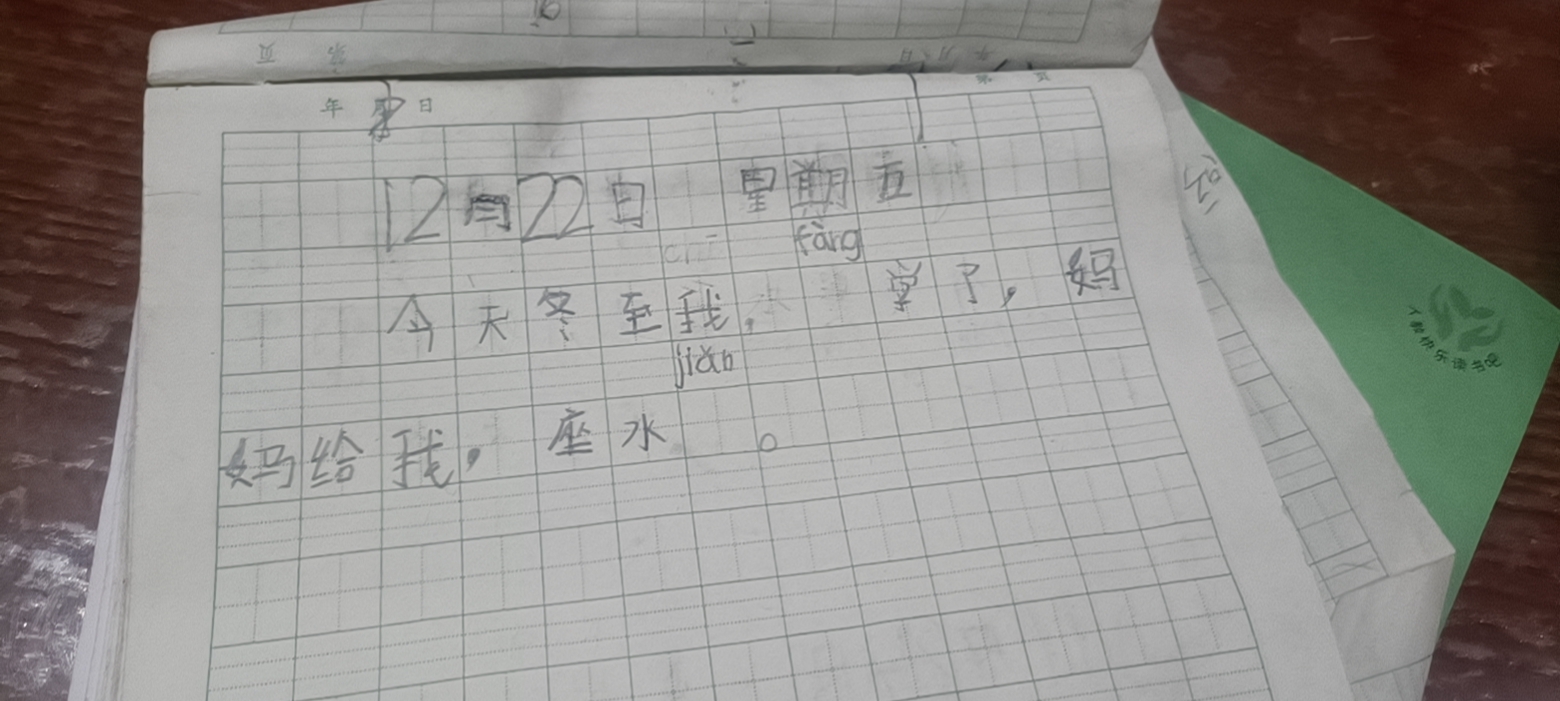 年 月 日
12月22日 星期五
fàng
今天冬至我, 学了, 妈
jiǎn
妈给我, 座水 。
人教快乐读书吧